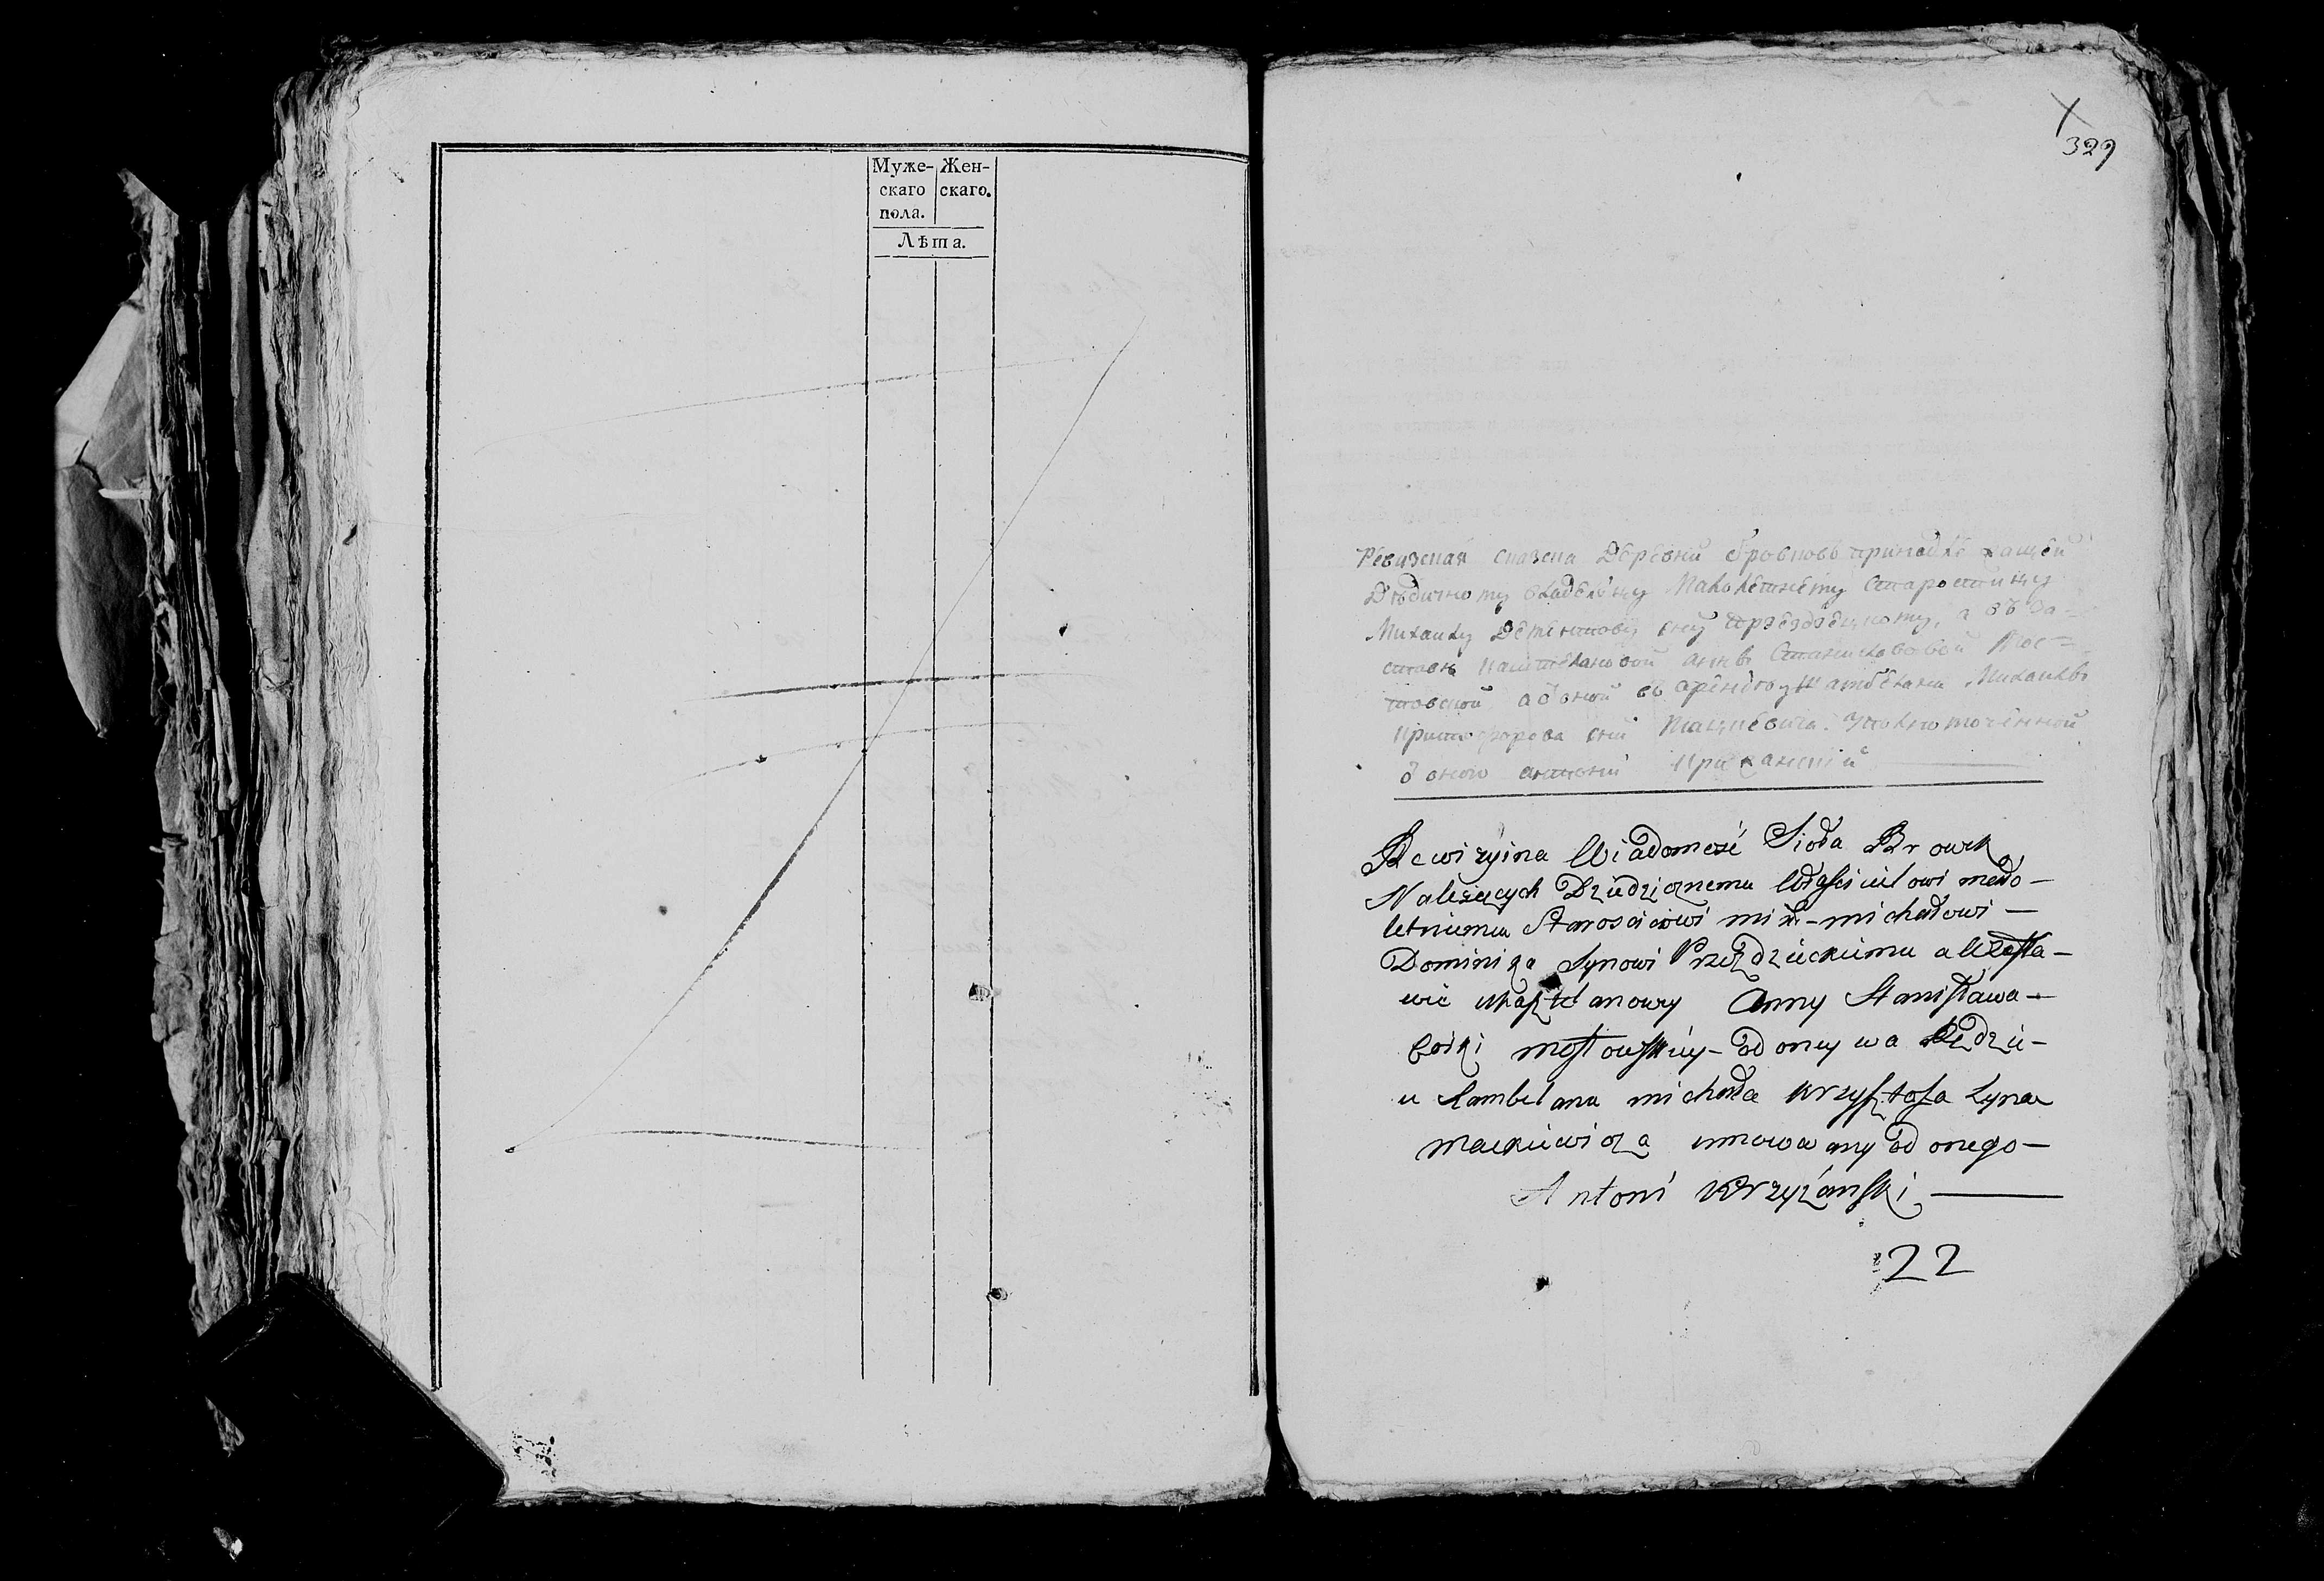 Муже-
скаго
пола.
Жен-
скаго.
Лѣта.
329
Ревизская сказка Деревни Бровковъ принадле жащей
Дѣдичному владелцу Малолетнему Старостичу
Михаилу Доминикову сну
Анне Станиславовой Мос=
товской а въ оной въ аренде у Шамбеляна Михаила
Криштофорова сна Мацкевича. Уполномоченной
Антоний Крижанский
Rewizyina Wiadomość Sioła Browk
Należących Dziedzicznemu Właścicielowi mało—
letniemu Starościcowi michałowi—
Dominika Synowi Przezdzieckiemu a w Zasta—
wie Kasztelanowy Anny Stanisława—
Corki mostowskiey— od oney w a Rędzie—
u Szambelana michała Krzysztofa Syna
Mackiewicza umocowany od onego—
Antoni Krzyżanski
22